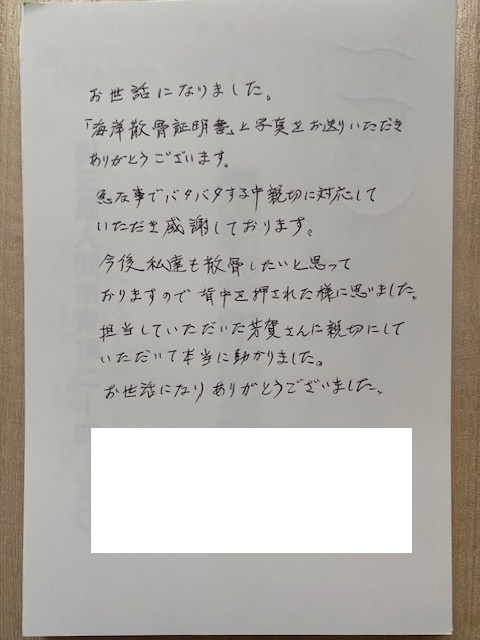 お世話になりました。
「海岸散骨証明書」と写真をお送りいただき
ありがとうございます。
急な事でバタバタする中親切に対応して
いただき感謝しております。
今後私達も散骨したいと思って
おりますので背中を押された様に思いました。
担当していただいた芳賀さんに親切にして
いただいて本当に助かりました。
お世話になりありがとうございました。